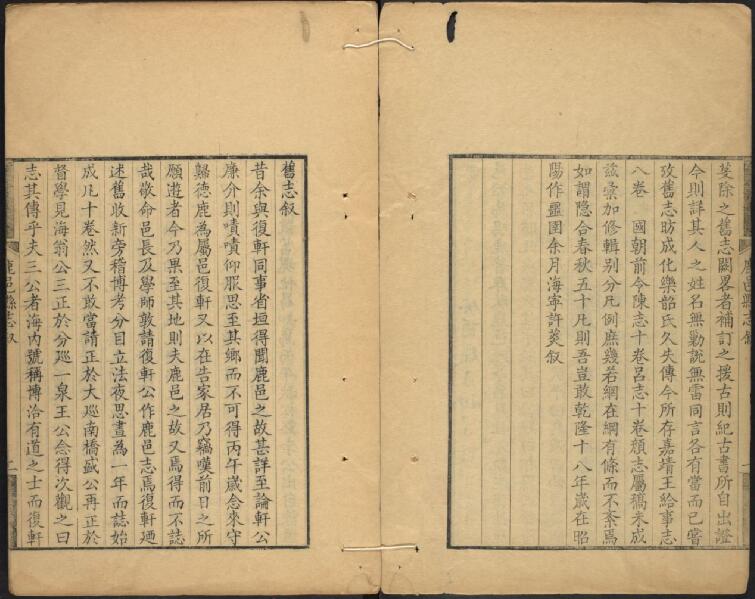 芟除之舊志闕畧者補訂之援古則紀古書所自出證
今則詳其人之姓名無勦說無雷同言各有當而已嘗
攷舊志昉成化樂韶氏久失傳今所存嘉靖王給事志
八卷　國朝前令陳志十卷呂志十卷頹志屬稿未成
茲彙加修輯別分凡例庶幾若網在綱有條而不紊焉
如謂隐合春秋五十凡則吾豈敢乾隆十八年歲在昭
陽作噩圉余月海寧許菼叙
鹿邑縣志
舊志叙
昔余與復軒同事省垣得聞鹿邑之故甚詳至論軒公
廉介則嘖嘖仰服思至其鄉而不可得丙午歲念來守
歸德鹿為屬邑復軒又以在告家居乃竊嘆前日之所
願遊者今乃果至其地則夫鹿邑之故又焉得而不誌
哉敬命邑長及學師敦請復軒公作鹿邑志焉復軒廼
述舊收新旁稽博考分目立法夜思晝為一年而誌始
成凡十卷然又不敢當請正於大廵南橋盛公再正於
督學見海翁公三正於分廵一泉王公念得次觀之曰
志其傳乎夫三公者海內號稱博洽有道之士而復軒
鹿邑縣志叙
二